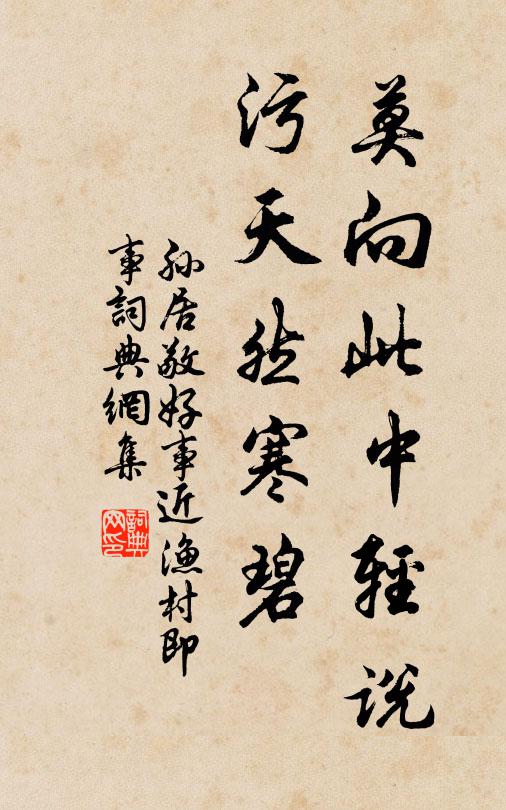 莫向此中輕說
污天然寒碧
孙居敬好事近渔村即
事詞典網集
詞典
网印